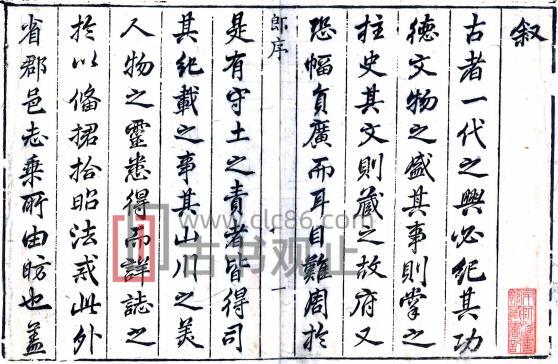 叙
古者一代之興必紀其功
德文物之盛其事則掌之
柱史其文則藏之故府又
恐幅員廣而耳目難周於
郎序
一
是有守土之責者皆得司
其紀載之事其山川之美
人物之靈悉得而詳誌之
於以俻捃拾昭法戒此外
省郡邑志乗所由昉也盖
www.clc86.com
古书观止